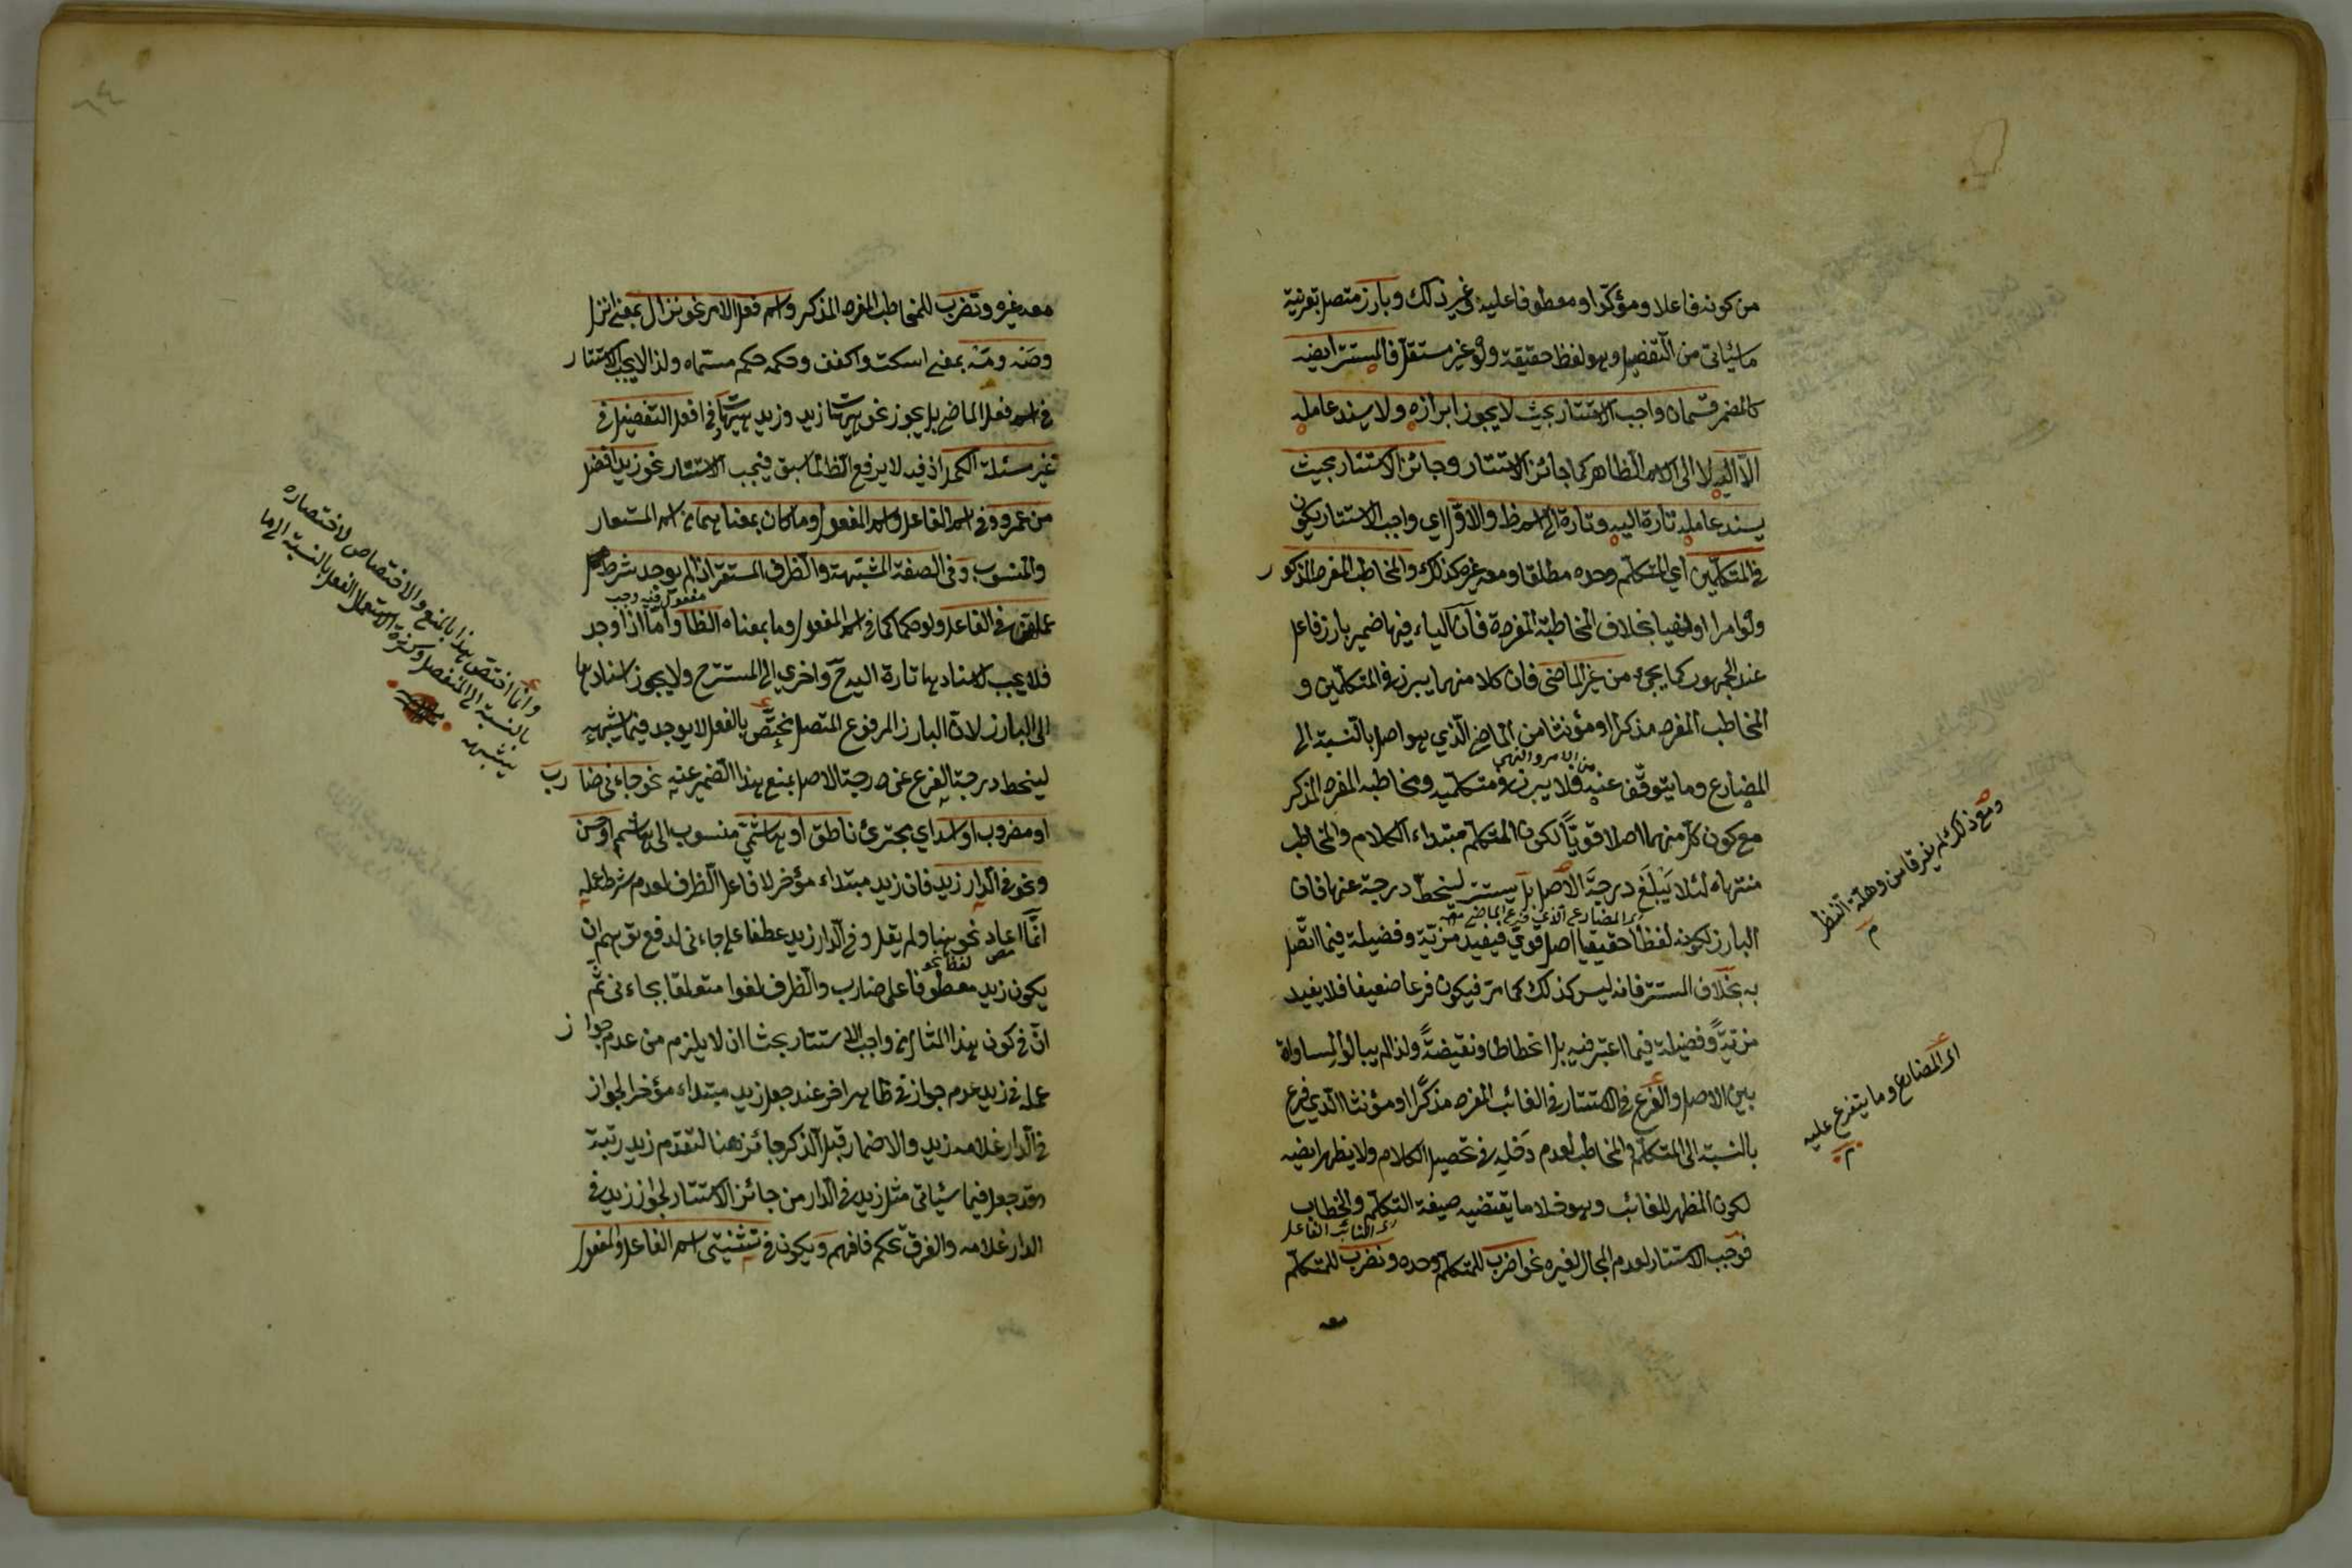 من كونه فاعلا ومؤكدا ومعطوفا عليه وغير ذلك وبارز متصل بقرينة
ما سيأتي من التفصيل وهو لفظ حقيقة ولو غير مستقل فالمستتر ايضه
كالمضمر قسمان واجب الاستتار بحيث لا يجوز ابرازه ولا يسند عامله
الا اليه لا الى الاسم الظاهر كما جائز الاستتار وجائز الاستتار بحيث
يسند عامله تارة اليه وتارة الى اسم ظ والاول اي واجب الاستتار يكون
في المتكلمين اي المتكلم وحده مطلقا ومعه غيره كذلك والمخاطب المفرد المذكور
ولو امرا او نهيا بخلاف المخاطبة المفردة فان الياء فيها ضمير بارز فاعل
عند الجمهور كما يجئ من غير الماضى فان كلا منهما يبرز في المتكلمين و
المخاطب المفرد مذكرا او مؤنثا من الماضي الذي هو اصل بالنسبة الى
من الامر والنهى
المضارع وما يتوقف عنه فلا يبرز في متكلميه ومخاطبه المفرد المذكر
مع كون كل منهما اصلا قويا لكون المتكلم مبتداء الكلام والمخاطب
منتهاه لئلا يبلغ درجة الاصل بل يستتر لينحط درجة عنها فان
اى المضارع الذي فرع الماضى معه
البارز لكونه لفظا حقيقيا اصل قوي فيفيد مزية وفضيلة فيما اتصل
به بخلاف المستتر فانه ليس كذلك كما مر فيكون فرعا ضعيفا فلا يفيد
مزية وفضيلة فيما اعتبر فيه بل انحطاطا ونقيضة ولذا لم يبالوا لمساواة
بين الاصل والفرع في الاستتار في الغائب المفرد مذكرا او مؤنثا الذي فرع
بالنسبة الى المتكلم والمخاطب لعدم دخله في تحصيل الكلام ولا يظهر ايضه
لكون المظهر للغائب وهو خلاف ما يقتضيه صيغة التكلم والخطاب
اى النائب الفاعل
فوجب الاستتار لعدم المجال لغيره نحو اضرب للمتكلم وحده ونضرب للمتكلم
معه
ومع ذلك لم يفرقا من وهلة النظر
م
اى المضارع وما يتفرع عليه
م
معه غيره وتضرب للمخاطب المفرد المذكر واسم فعل الامر نحو نزال بمعنى انزل
وصه ومه بمعنى اسكت واكفف وحكمه حكم مسماه ولذا لا يجب الاستتار
في اسم فعل الماضي بل يجوز نحو هيهات زيد وزيد هيهات وفي افعل التفضيل في
غير مسئلة الكحل اذ فيه لا يرفع الظ لما سبق فيجب الاستتار نحو زيد افضل
من عمرو وفي اسم الفاعل واسم المفعول وما كان بمعناهما من اسم المستعار
والمنسوب وفي الصفة المشبهة والظرف المستقر اذا لم يوجد شرط
مفعول فيه وجب
عملهن في الفاعل ولو حكما كما في اسم المفعول وما بمعناه الظ واما اذا وجد
فلا يجب لاسنادها تارة اليه ح واخرى الى المستتر ح ولا يجوز اسنادها
الى البارز لان البارز المرفوع المتصل مختص بالفعل لا يوجد فيما يشبهه
لينحط درجة الفرع عن درجة الاصل بمنع هذا الضمير عنه نحو جاءنى ضارب
او مضروب او اسد اي مجترئ ناطق او هاشمى منسوب الى هاشم او حسن
ونحو في الدار زيد فان زيد مبتداء مؤخر لا فاعل الظرف لعدم شرط عمله
انما اعاد نحو هنا ولم يقل وفي الدار زيد عطفا على جاءنى لدفع توهم ان
لفظ نحو
يكون زيد معطوفا على ضارب والظرف لغوا متعلقا بجاءنى ثم
ان في كون هذا المثال من واجب الاستتار بحثا ان لا يلزم من عدم جواز
عمله في زيد عدم جوازه في ظاهر اخر عند جعل زيد مبتداء مؤخر الجواز
في الدار غلامه زيد والاضمار قبل الذكر جائز هنا لتقدم زيد رتبة
وقد جعل فيما سيأتي مثل زيد في الدار من جائز الاستتار لجواز زيد في
الدار غلامه والفرق تحكم فافهم ويكون في تثنيتى اسم الفاعل والمفعول
وانما اختص هذا بالمنع والاختصاص لاختصاره
بالنسبة الى المنفصل وكثرة استعمال الفعل بالنسبة الى ما
يشبهه
٦٤